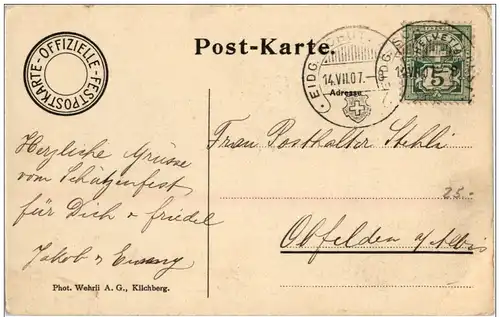 OFFIZIELLE-FESTPOSTKARTE-
Post-Karte.
EIDG.
14.VII.07.
Adresse
HELVETIA
5
Herzliche Grüsse
vom Schützenfest
für Dich & Friedel
Jakob &
Frau Posthalter Stehli
Obfelden a/Albis
25.-
Phot. Wehrli A. G., Kilchberg.